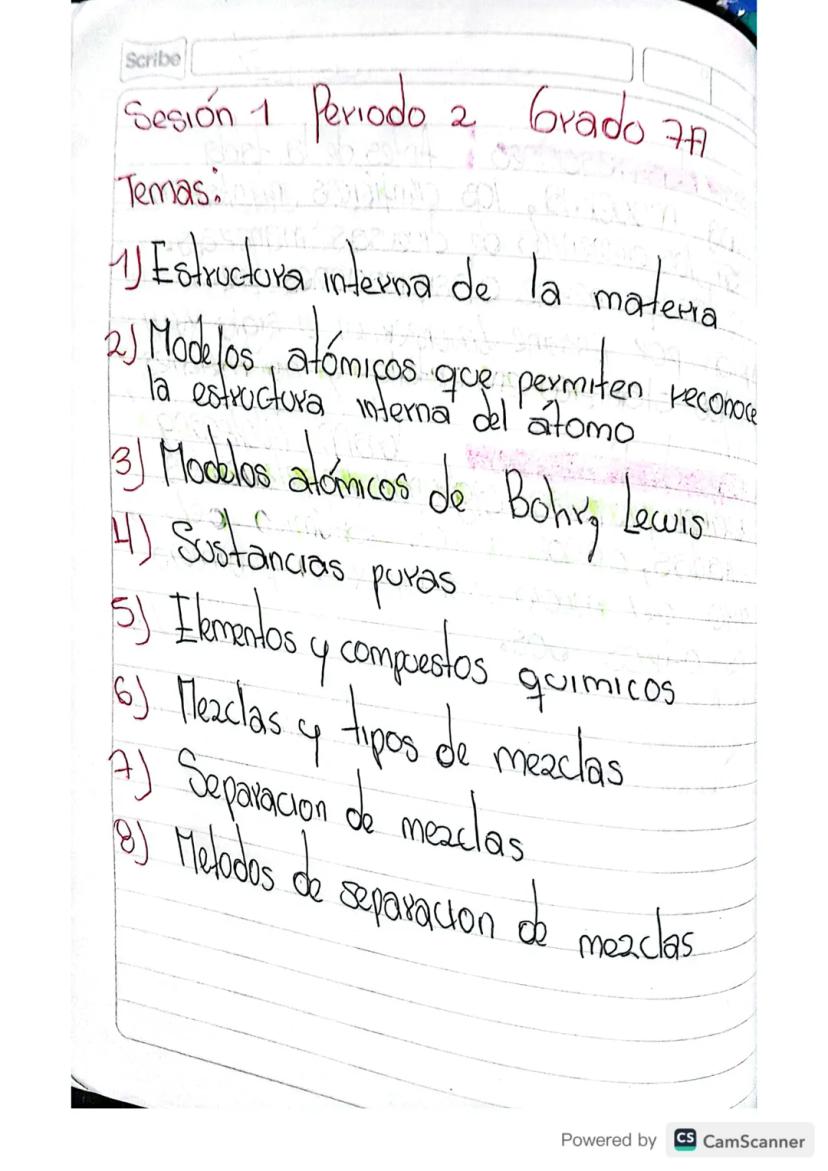 Scribe
Sesión 1 Periodo 2 Grado 7A
Temas:
1) Estructura interna de la materia
2) Modelos atómicos que permiten reconoce
la estructura interna del átomo
3) Modelos atómicos de Bohr y Lewis
4) Sustancias puras
5) Elementos y compuestos quimicos
6) Mezclas y tipos de mezclas
7) Separacion de mezclas
8) Metodos de separacion de mezclas
Powered by CS CamScanner